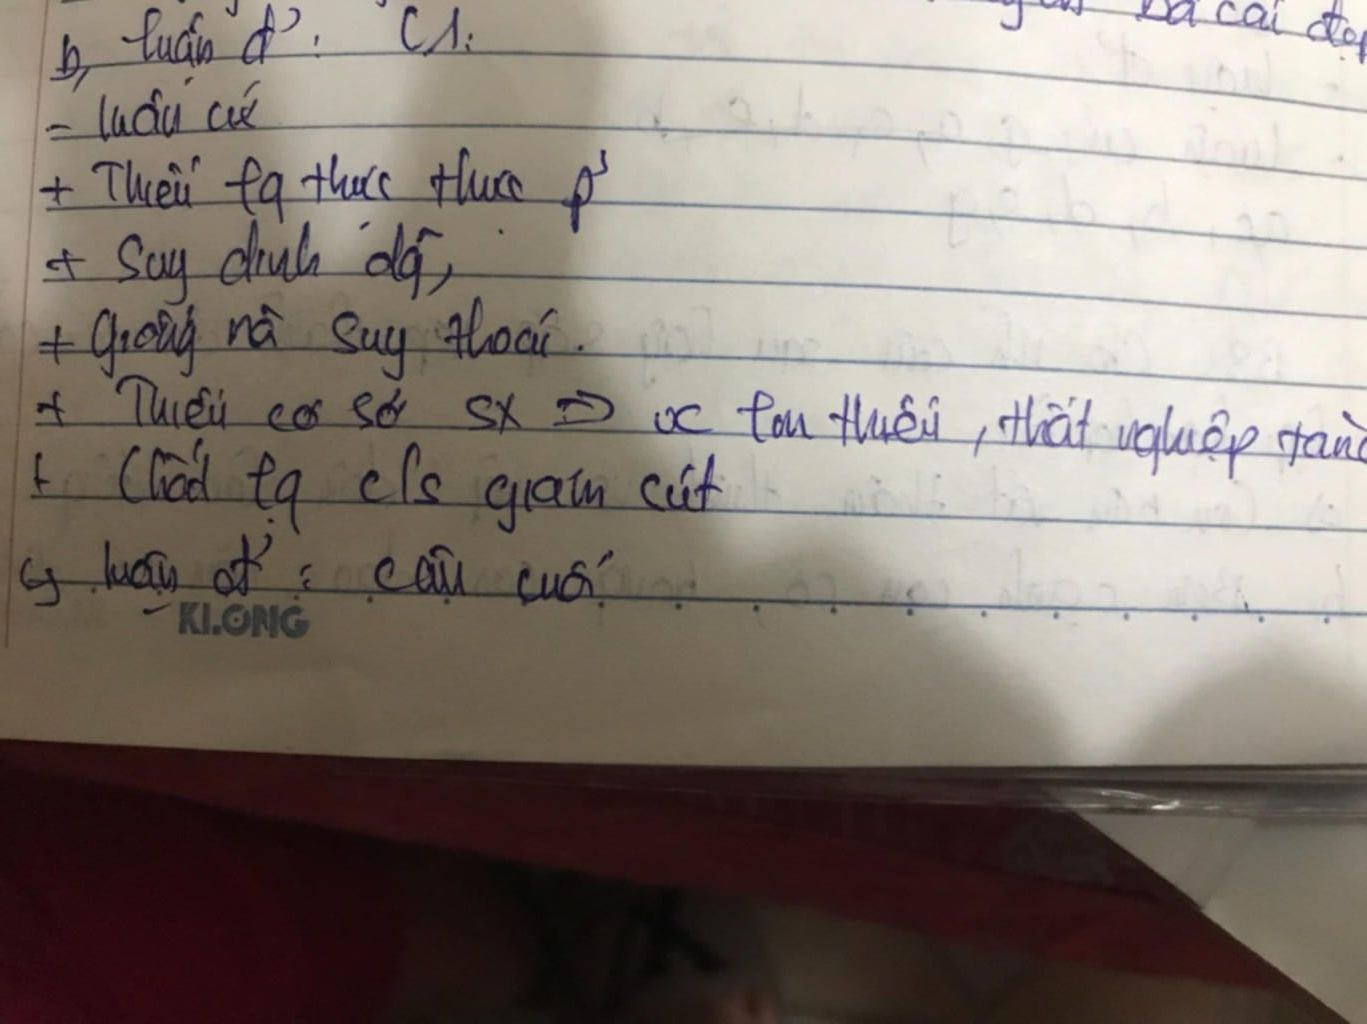 bà cái đẹp
b, luận đ': C1:
- luận cứ
+ Thiếu lg thực thực p'
+ Suy dinh dg,
+ Giống nà suy thoái.
+ Thiếu cơ sở sx => ∝ lm thiếu, thất nghiệp tăng
+ Chất lg c/s giảm cút
c, luận đ' : câu cuối
KLONG